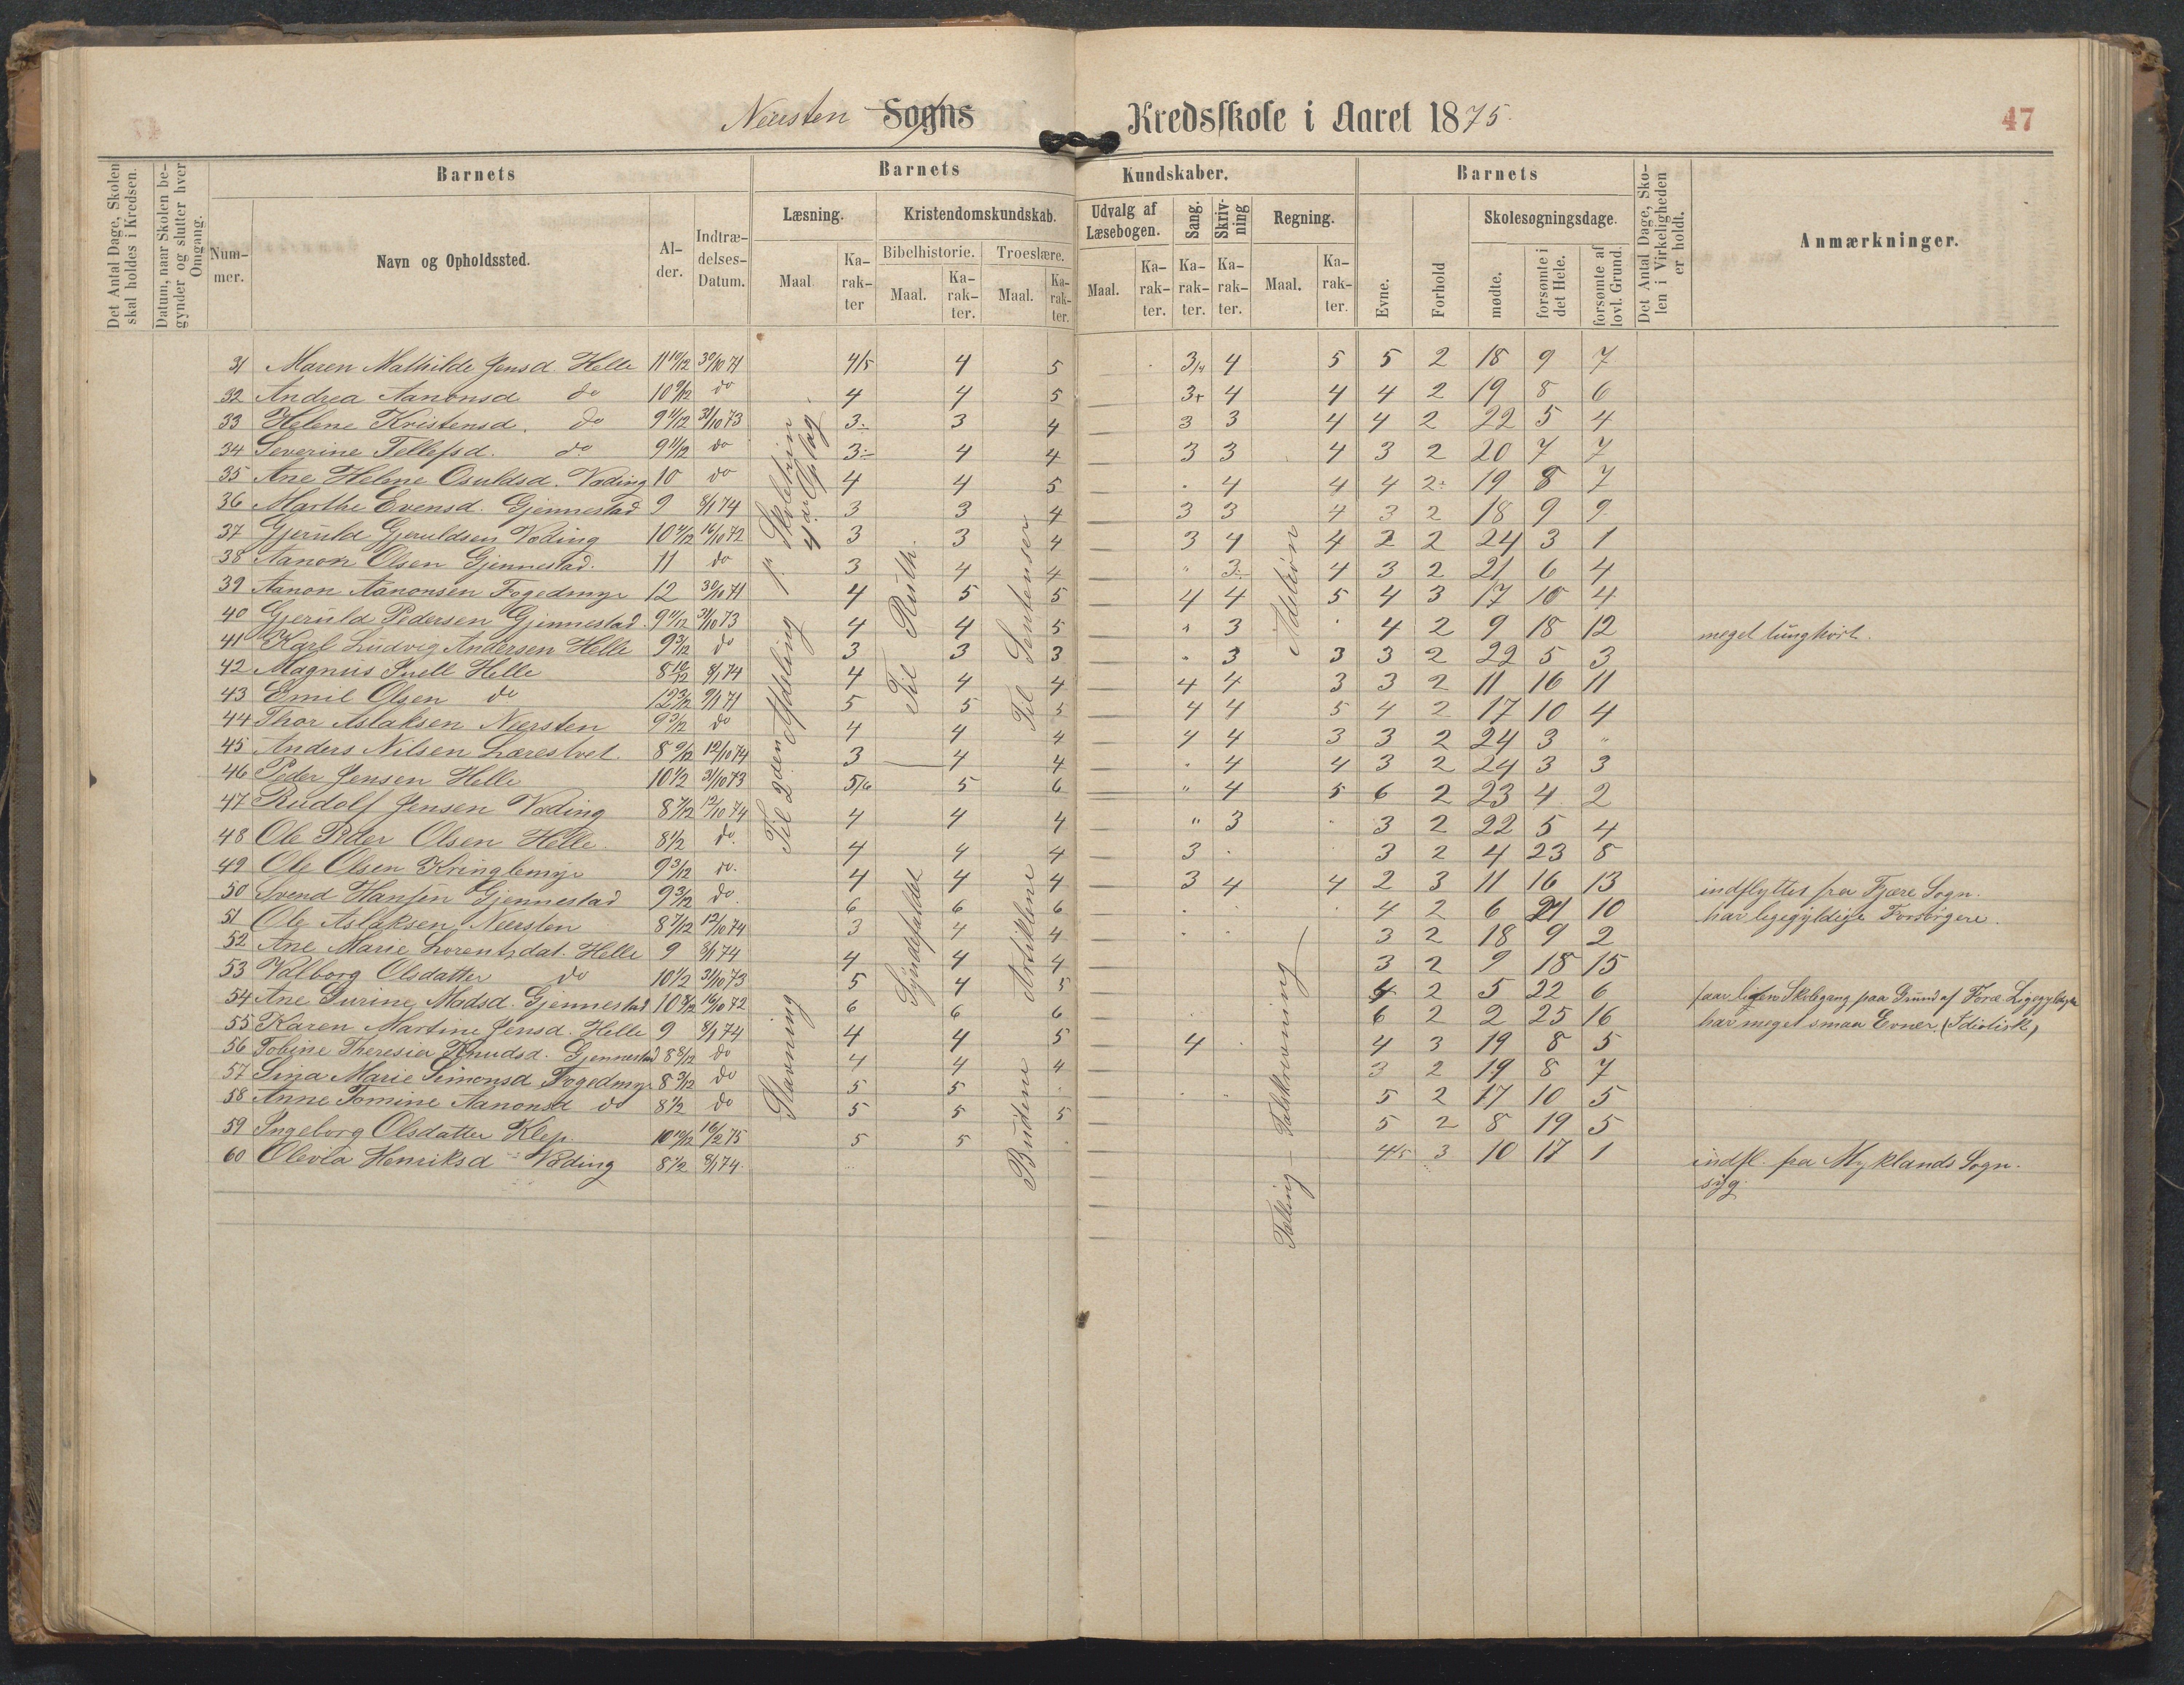 Neersten Sogns Kredsskole i Aaret 1875.
47
Det Antal Dage, Skolen skal holdes i Kredsen.
Datum, naar Skolen begynder og slutter hver Omgang.
Barnets
Barnets
Kundskaber.
Barnets
Det Antal Dage, Skolen i Virkeligheden er holdt.
Anmærkninger.
Nummer.
Navn og Opholdssted.
Alder.
Indtrædelses-Datum.
Læsning.
Kristendomskundskab.
Udvalg af Læsebogen.
Sang.
Skrivning
Regning.
Evne.
Forhold
Skolesøgningsdage.
Bibelhistorie.
Troeslære.
Maal
Karakter
Maal.
Karakter.
Maal.
Karakter.
Maal.
Karakter.
Karakter.
Karakter.
Maal.
Karakter.
mødte.
forsømte i det Hele.
forsømte af lovl. Grund.
31 Maren Mathilde Jensd. Helle 11 10/12 30/10 71 4/5 4 5 3/4 4 5 5 2 18 9 7
32 Andrea Aanonsd do 10 9/12 do 4 4 5 3+ 4 4 4 2 19 8 6
33 Helene Kristensd. do 9 11/12 31/10 73 3 3 4 3 3 4 4 2 22 5 4
34 Severine Tellefsd. do 9 11/12 do 3 4 4 3 3 4 3 2 20 7 7
35 Ane Helene Osuldsd. Vøding 10 do 4 4 5 4 4 4 2 19 8 7
36 Marthe Evensd. Gjennestad 9 8/1 74 3 3 4 3 3 4 3 2 18 9 9
37 Gjeruld Gjeruldsen Vøding 16/10 72 3 3 4 3 4 4 2 2 24 3 1
38 Aanon Olsen Gjennestad. 11 do 3 4 4 " 3 4 3 2 21 6 4
39 Aanon Aanonsen Fogedmyr 12 30/10 71 4 5 5 4 4 5 4 3 17 10 4
40 Gjeruld Pedersen Gjennestad. 9 11/12 31/10 73 4 4 5 " 3 4 2 9 18 12 meget tunghørt.
41 Karl Ludvig Andersen Helle 9 3/12 do 3 3 3 " 3 3 3 2 22 5 3
42 Magnus Helle 8 10/12 8/1 74 4 4 4 4 4 3 3 2 11 16 11
43 Emil Olsen do 12 3/12 5 5 5 4 4 5 4 2 17 10 4
44 Thor Aslaksen Neersten 9 3/12 do 4 4 4 4 4 3 3 2 24 3 "
45 Anders Nilsen Lærestvet 8 9/12 12/10 74 3 4 4 4 4 3 2 24 3 3
46 Peder Jensen Helle 10 1/2 31/10 73 5/6 5 6 " 4 5 6 2 23 4 2
47 Rudolf Jensen Vøding 8 7/12 12/10 74 4 4 4 " 3 3 2 22 5 4
48 Ole Peder Olsen Helle. 8 1/2 do. 4 4 4 3 3 2 4 23 8
49 Ole Olsen Kringlemyr 9 3/12 do. 4 4 4 3 4 4 2 3 11 16 13 indflyttet fra Fjære Sogn.
50 Svend Hansen Gjennestad 9 3/12 do. 6 6 6 4 2 6 21 10 har ligegyldige Forsørgere.
51 Ole Aslaksen Neersten 8 7/12 12/10 74 3 4 4 3 2 18 9 2
52 Ane Marie Lorentzdat. Helle 9 8/1 74 4 4 4 3 2 9 18 15
53 Valborg Olsdatter do 10 1/2 31/10 73 5 4 5 4 2 5 22 6 faar liden Skolegang paa Grund af Foræ.
54 Ane Gurine Madsd. Gjennestad 10 8/12 16/10 72 6 6 6 6 2 2 25 16 har meget smaa Evner. (Idiotisk)
55 Karen Martine Jensd. Helle 9 8/1 74 4 4 5 4 4 3 19 8 5
56 Tobine Theresia Knudsd. Gjennestad 8 8/12 do 4 4 4 3 2 19 8 7
57 Sina Marie Simonsd. Fogedmyr 8 3/12 do 5 5 5 2 17 10 5
58 Anne Tomine Aanonsd do 8 1/2 do 5 5 5 5 2 8 19 5
59 Ingeborg Olsdatter Klep. 10 10/12 16/2 75 5 5 4/5 3 10 17 1 indfl. fra Myklands Sogn.
60 Olevia Henriksd Vøding 8 1/2 8/1 74. syg.
Til 2den Afdeling 1ste Skoletrin
Stavning
Til Ruth.
Syndefaldet
Til Sentenser
Artiklene
Budene
Adition
Tælling - Talskrivning